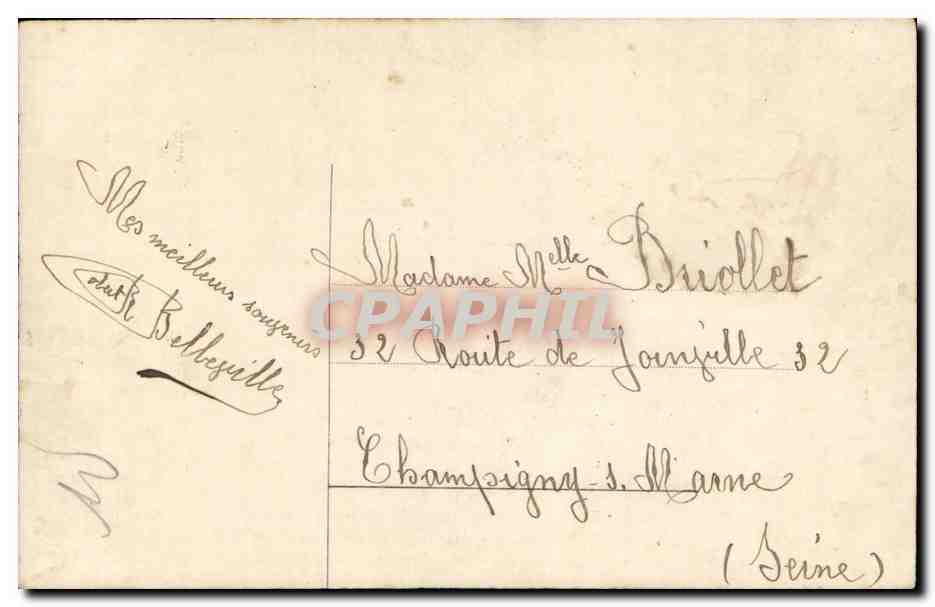 Mes meilleurs souvenirs
Belleville
Madame Melle Briollet
CPAPHIL
32 Route de Joinville 32
Champigny s. Marne
(Seine)